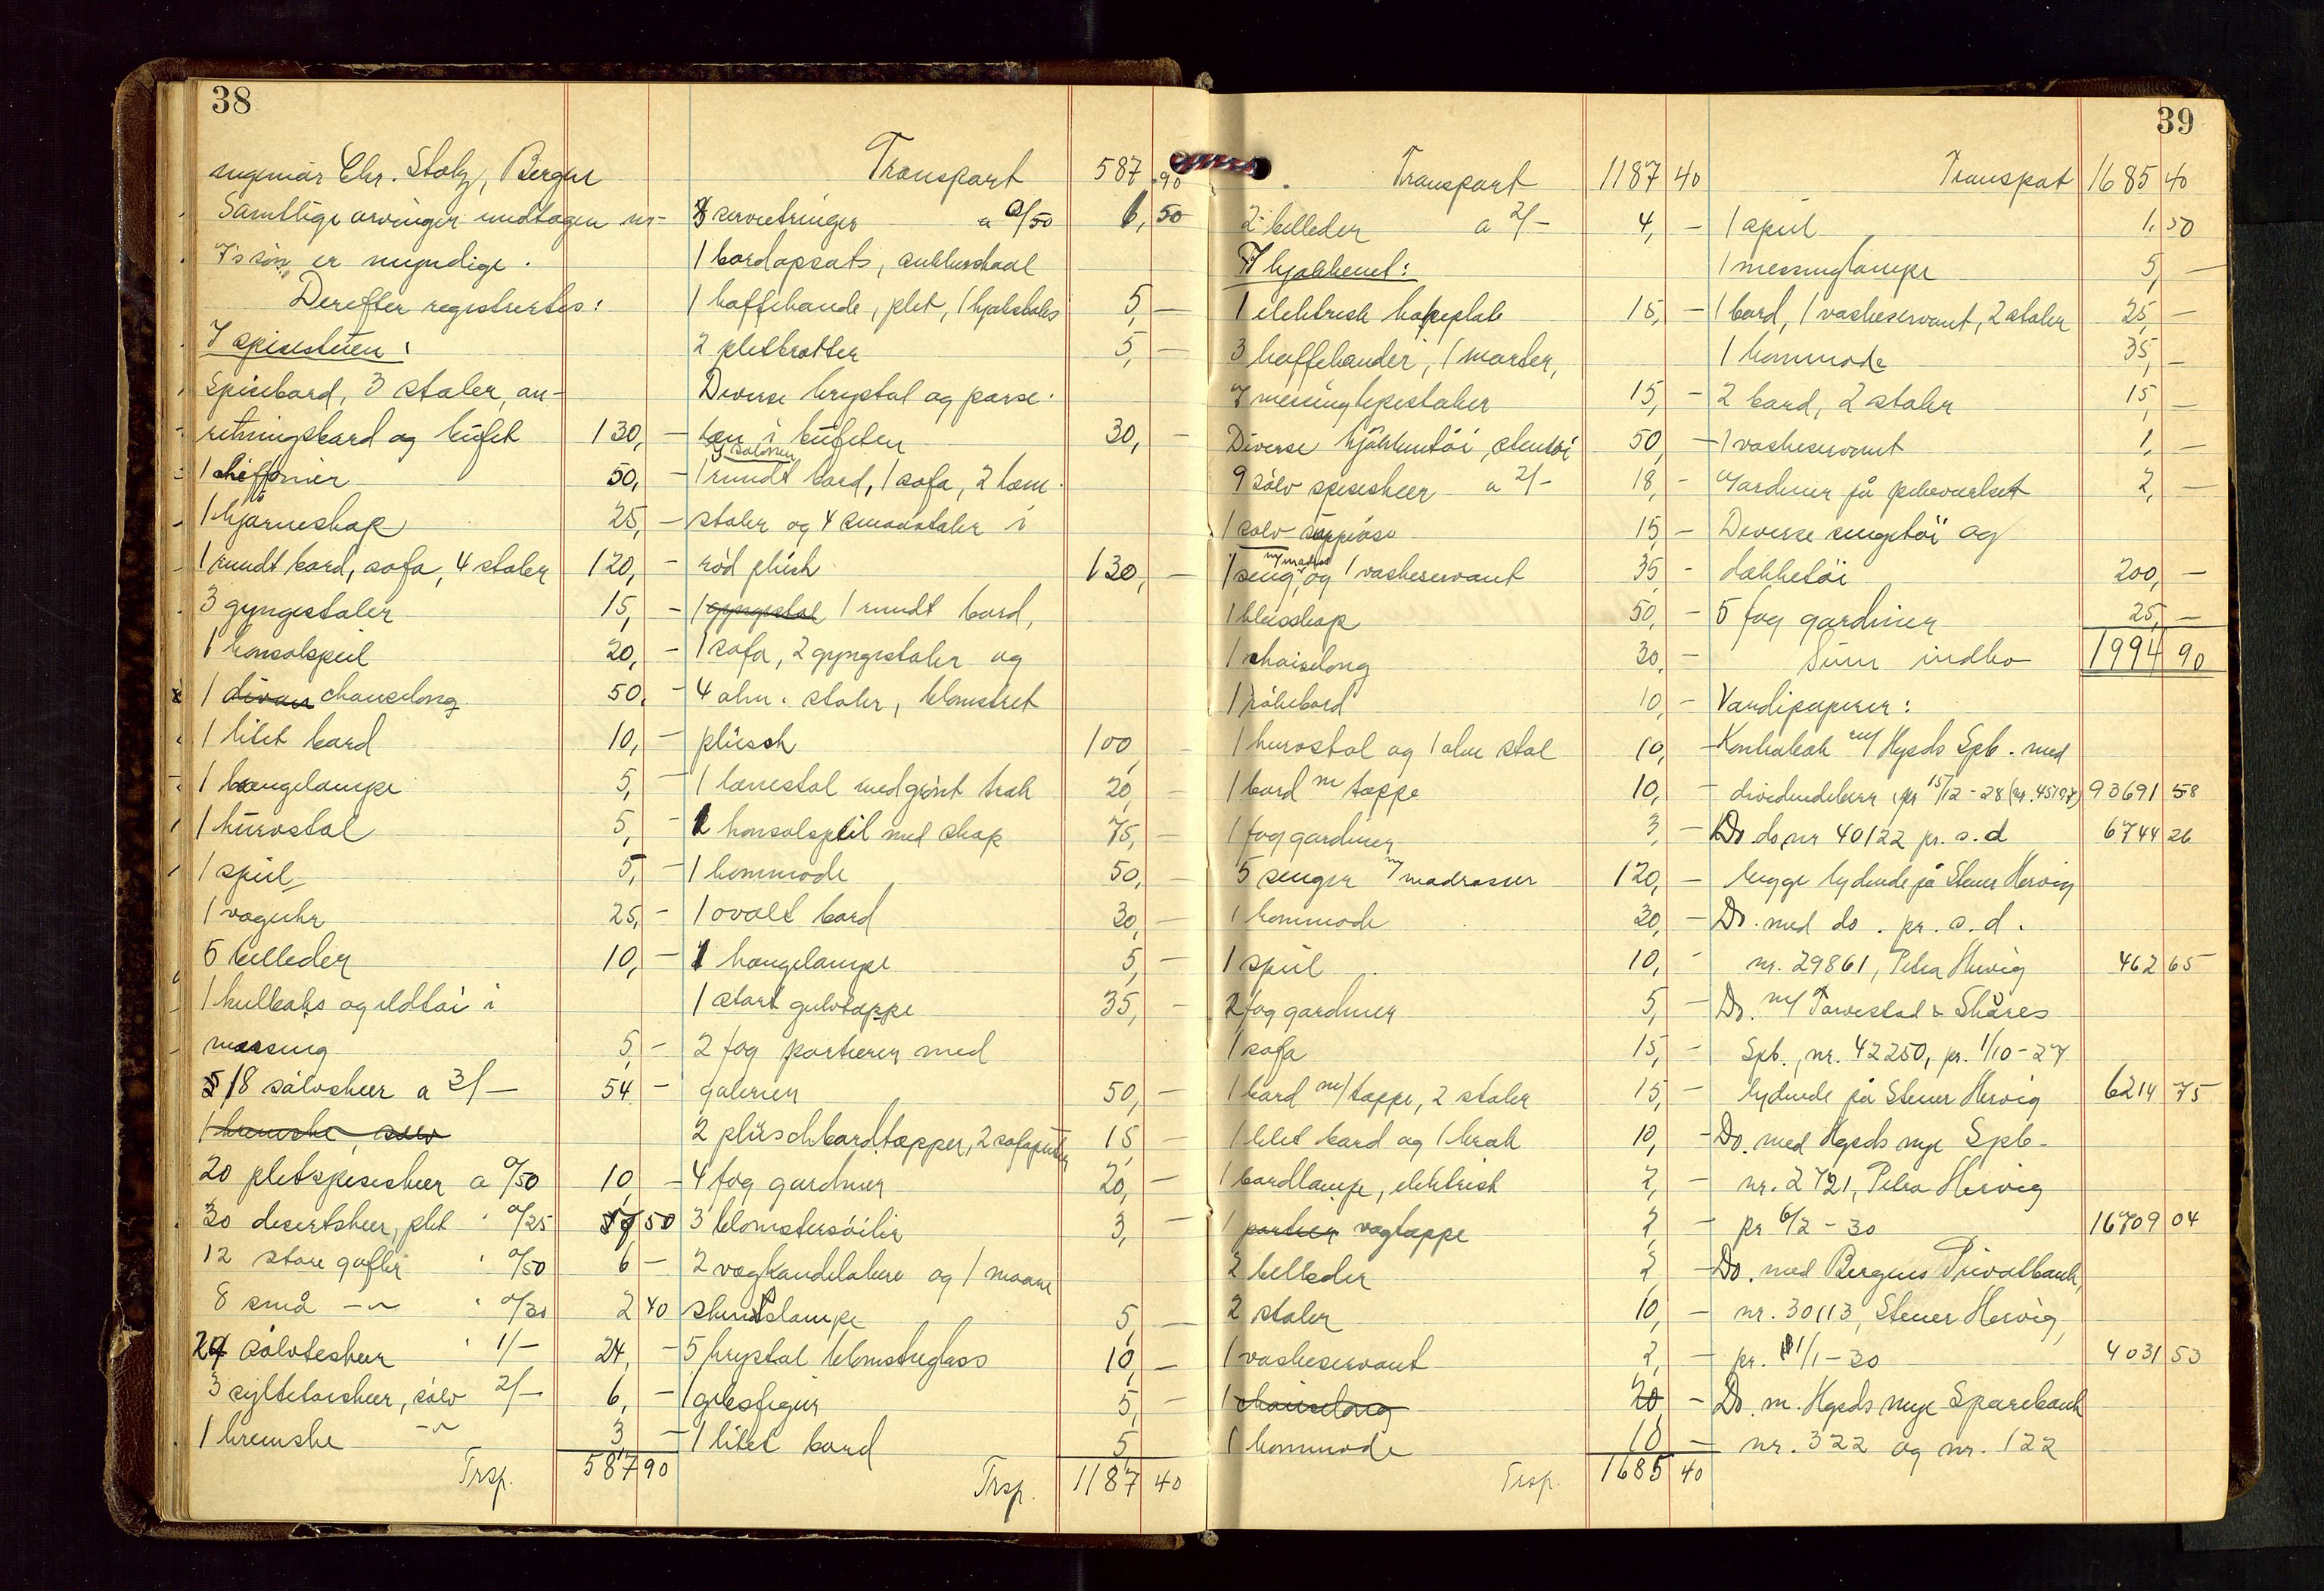 38
ingeniör Chr. Stolz, Bergen
Samtlige arvinger undtagen nr.
7's sön er myndige.
Derefter registrertes:
I spisestuen:
Spisebord, 3 stoler, an-
retningsbord og büfet 130,-
1 chiffonier 50,-
1 hjörneskap 25,-
1 rundt bord, sofa, 4 stoler 120,-
3 gyngestoler 15,-
1 konsolspeil 20,-
1 divan chaiselong 50,-
1 litet bord 10,-
1 hængelampe 5,-
1 kürvstol 5,-
1 speil 5,-
1 væguhr 25,-
5 billeder 10,-
1 kulboks og ildtöi i
messing 5,-
18 sölvskeer a 3/- 54 -
1 kremske, sölv
20 pletspiseskeer a 0/50 10 -
30 desertskeer, plet " 0/25 7,50
12 store gafler " 0/50 6 -
8 små -"- " 0/30 2 40
24 sölvteskeer " 1/- 24, -
3 syltetöiskeer, sölv 2/- 6, -
1 kremske -"- 3 -
Trsp. 587 90
Transport 587.90
servietringer a 0/50 6,50
1 bordopsats, sukkerskaal
1 kaffekande, plet, 1 kjeksboks 5,-
2 pletbretter 5,-
Diverse krystal og porse-
læn i büfeten 30,-
I salonen
1 rundt bord, 1 sofa, 2 læn-
stoler og 4 smaastoler i
röd plüsh 130,-
1 gyngestol 1 rundt bord,
1 sofa, 2 gyngestoler og
4 alm. stoler, blomstret
plüsch 100,-
1 lænestol med grönt træk 20,-
1 konsolspeil med skap 75,-
1 kommode 50,-
1 ovalt bord 30,-
1 hængelampe 5,-
1 stort gulvtæppe 35,-
2 fag portierer med
galerier 50,-
2 plüschbordtæpper, 2 sofaputer 15 -
4 fag gardiner 20,-
3 blomstersöiler 3,-
2 vægkandelabere og 1 maane
skinslampe 5,-
5 krystal blomsterglass 10,-
1 gibsfigur 5,-
1 litet bord 5
Trsp. 1187 40
39
Transport 1187 40
2 billeder a 2/- 4,-
I kjøkkenet:
1 elektrisk kokeplate 15,-
3 kaffekander, 1 morter,
7 messinglysestaker 15,-
Diverse kjökkentöi, stentöi 50,-
9 sölv spiseskeer a 2/- 18,-
1 sölv suppeöse 15,-
1 seng m/madras og 1 vaskeservant 35 -
1 klesskap 50,-
1 chaiselong 30,-
1 rökebord 10,-
1 kurvstol og 1 alm stol 10,-
1 bord m tæppe 10,-
1 fag gardiner 3,-
5 senger m/ madrasser 120,-
1 kommode 30,-
1 speil 10,-
2 fag gardiner 5,-
1 sofa 15,-
1 bord m/ tæppe, 2 stoler 15,-
1 litet bord og 1 krak 10,-
1 bordlampe, elektrisk 2,-
1 portier vægtæppe 2,-
2 billeder 2 -
2 stoler 10,-
1 vaskeservant 2,-
1 chaiselong 20 -
1 kommode 10 -
Trsp. 1685 40
Transpot 1685 40
1 speil 1,50
1 messinglampe 5,-
1 bord, 1 vaskeservant, 2 stoler 25,-
1 kommode 35,-
2 bord, 2 stoler 15,-
1 vaskeservant 1,-
Gardiner på pikeværelset 2,-
Diverse sengetöi og
dækketöi 200,-
5 fag gardiner 25,-
Sum indbo 1994 90
Værdipapirer:
Kontrabok m/ Hgsds Spb. med
dividendebevis, pr 15/12-28 (nr. 45197) 93691 58
Do. do, nr 40122 pr. s. d 6744 26
begge lydende på Stener Hervig
Do. med do. pr. s. d.
nr. 29861, Petra Hervig 462 65
Do. m/ Torvestad & Skåres
Spb., nr. 42250, pr. 1/10-27
lydende på Stener Hervig 6214 75
Do. med Hgsds nye Spb.
nr. 2721, Petra Hervig
pr 6/2-30 16709 04
Do. med Bergens Privatbank,
nr. 30113, Stener Hervig,
pr. 1/1-30 4031 53
Do. m. Hgsds nye Sparebank
nr. 322 og nr. 122